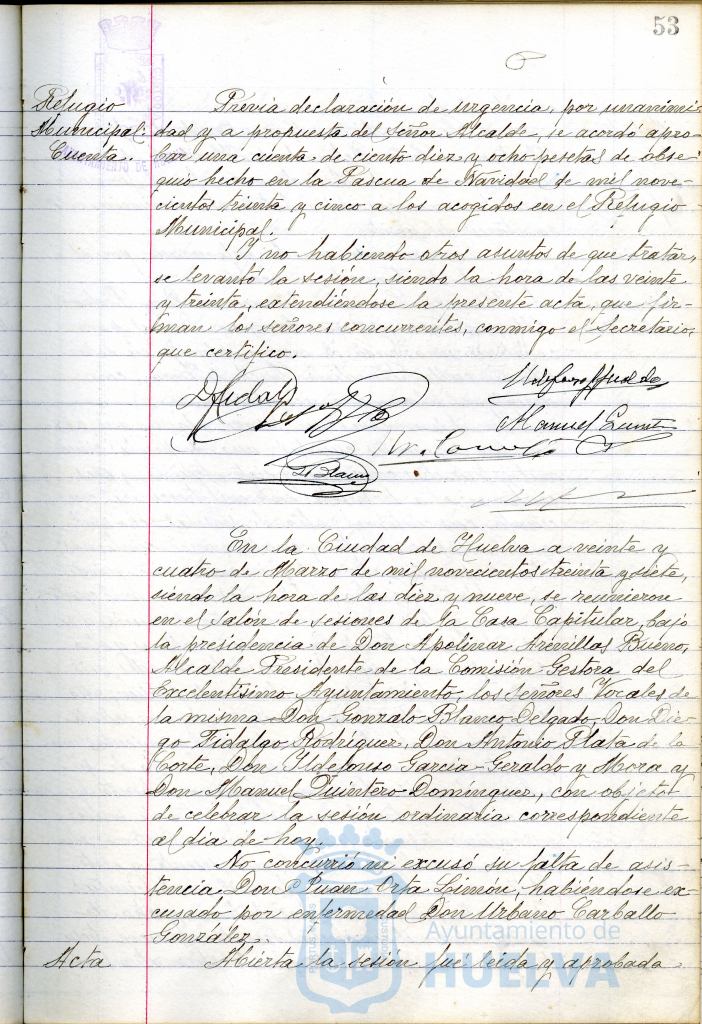 53
Refugio
Municipal.
Cuenta.
Previa declaración de urgencia, por unanimi-
dad y a propuesta del Señor Alcalde, se acordó apro-
bar una cuenta de ciento diez y ocho pesetas de obse-
quio hecho en la Pascua de Navidad de mil nove-
cientos treinta y cinco a los acogidos en el Refugio
Municipal.
Y no habiendo otros asuntos de que tratar,
se levantó la sesión, siendo la hora de las veinte
y treinta, extendiéndose la presente acta, que fir-
man los señores concurrentes, conmigo el Secretario,
que certifico.
Manuel
En la Ciudad de Huelva a veinte y
cuatro de Marzo de mil novecientos treinta y siete,
siendo la hora de las diez y nueve, se reunieron
en el Salón de sesiones de la Casa Capitular, bajo
la presidencia de Don Apolinar Arenillas Bueno,
Alcalde Presidente de la Comisión Gestora del
Excelentísimo Ayuntamiento, los Señores Vocales de
la misma Don Gonzalo Blanco Delgado, Don Die-
go Fidalgo Rodríguez, Don Antonio Plata de la
Corte, Don Ildefonso García-Geraldo y Mora y
Don Manuel Quintero Domínguez, con objeto
de celebrar la sesión ordinaria correspondiente
al día de hoy.
No concurrió ni excusó su falta de asis-
tencia Don Juan Orta Limón, habiéndose ex-
cusado por enfermedad Don Urbano Carballo
González.
Acta
Abierta la sesión fué leída y aprobada
Ayuntamiento de
HUELVA